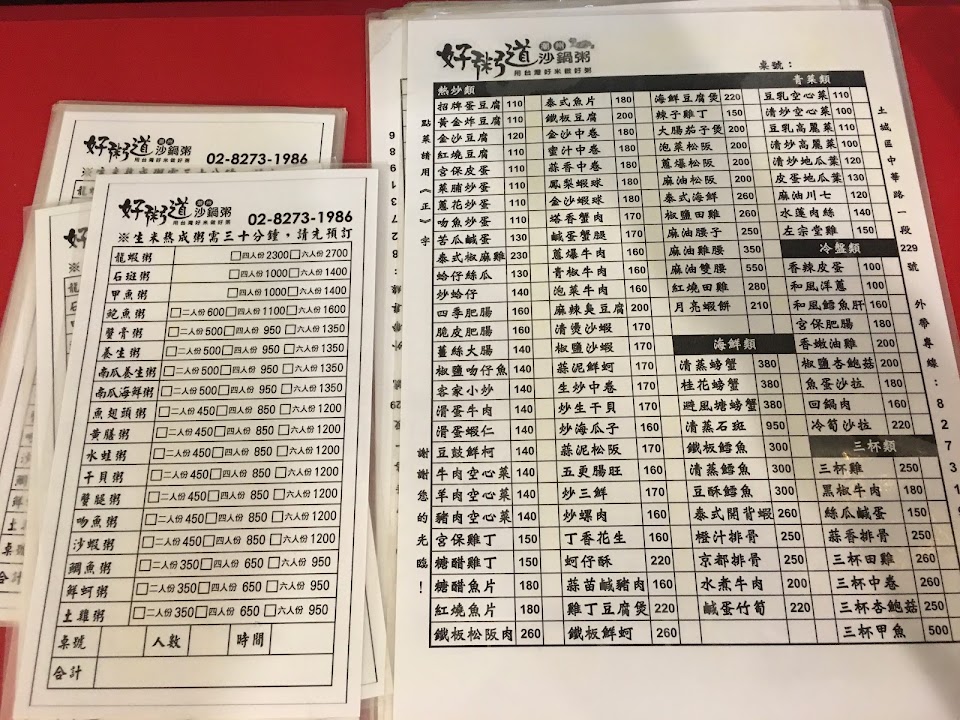 好粥道 潮州 沙鍋粥
用台灣好米做好粥
02-8273-1986
好粥道 潮州 沙鍋粥
用台灣好米做好粥
02-8273-1986
※生米熬成粥需三十分鐘,請先預訂
龍蝦粥 □四人份2300□六人份2700
石斑粥 □四人份1000□六人份1400
甲魚粥 □四人份1000□六人份1400
鮑魚粥 □二人份600□四人份1100□六人份1600
蟹膏粥 □二人份500□四人份 950□六人份1350
養生粥 □二人份500□四人份 950□六人份1350
南瓜養生粥 □二人份500□四人份 950□六人份1350
南瓜海鮮粥 □二人份500□四人份 950□六人份1350
魚翅頭粥 □二人份450□四人份 850□六人份1200
黃膳粥 □二人份450□四人份 850□六人份1200
水蛙粥 □二人份450□四人份 850□六人份1200
干貝粥 □二人份450□四人份 850□六人份1200
蟹腿粥 □二人份450□四人份 850□六人份1200
吻魚粥 □二人份450□四人份 850□六人份1200
沙蝦粥 □二人份450□四人份 850□六人份1200
鯛魚粥 □二人份350□四人份 650□六人份 950
鮮蚵粥 □二人份350□四人份 650□六人份 950
土雞粥 □二人份350□四人份 650□六人份 950
桌號 人數 時間
合計
好粥道 潮州 沙鍋粥
用台灣好米做好粥
桌號:
點菜請用《正》字
謝謝您的光臨!
熱炒類
招牌蛋豆腐 110
黃金炸豆腐 110
金沙豆腐 120
紅燒豆腐 110
宮保皮蛋 110
菜脯炒蛋 110
蔥花炒蛋 110
吻魚煎蛋 110
苦瓜鹹蛋 130
泰式椒麻雞 230
蛤仔絲瓜 130
炒蛤仔 140
四季肥腸 160
脆皮肥腸 160
薑絲大腸 140
椒鹽吻仔魚 150
客家小炒 140
滑蛋牛肉 140
滑蛋蝦仁 140
豆鼓鮮柯 140
牛肉空心菜 140
羊肉空心菜 140
豬肉空心菜 140
宮保雞丁 150
糖醋雞丁 150
糖醋魚片 180
紅燒魚片 180
鐵板松阪肉 260
泰式魚片 180
鐵板豆腐 200
金沙中卷 180
蜜汁中卷 180
蒜香中卷 180
鳳梨蝦球 180
金沙蝦球 180
塔香蟹肉 170
鹹蛋蟹腿 170
蔥爆牛肉 160
青椒牛肉 160
泡菜牛肉 160
麻辣臭豆腐 200
清燙沙蝦 180
椒鹽沙蝦 180
蒜泥鮮蚵 170
生炒中卷 170
炒生干貝 170
炒海瓜子 160
蒜泥松阪 170
五更腸旺 160
炒三鮮 170
炒螺肉 160
丁香花生 160
蚵仔酥 220
蒜苗鹹豬肉 160
雞丁豆腐煲 220
鐵板鮮蚵 160
海鮮豆腐煲 220
辣子雞丁 150
大腸茄子煲 200
泡菜松阪 200
蔥爆松阪 200
麻油松阪 200
泰式海鮮 250
椒鹽田雞 260
麻油腰子 250
麻油雞腰 350
麻油雙腰 550
紅燒田雞 280
月亮蝦餅 210
海鮮類
清蒸螃蟹 380
桂花螃蟹 380
避風塘螃蟹 380
清蒸石斑 950
鐵板鱈魚 300
清蒸鱈魚 300
豆酥鱈魚 300
泰式開背蝦 260
橙汁排骨 200
京都排骨 200
水煮牛肉 200
鹹蛋竹筍 220
青菜類
豆乳空心菜 110
清炒空心菜 100
豆乳高麗菜 110
清炒高麗菜 100
清炒地瓜葉 120
皮蛋地瓜葉 130
麻油川七 120
水蓮肉絲 140
左宗堂雞 150
冷盤類
香辣皮蛋 100
和風洋蔥 100
和風鱈魚肝 160
宮保肥腸 180
香嫩油雞 200
椒鹽杏鮑菇 200
魚蛋沙拉 180
回鍋肉 160
冷筍沙拉 220
三杯類
三杯雞 250
黑椒牛肉 180
絲瓜鹹蛋 150
蒜香排骨 250
三杯田雞 260
三杯中卷 260
三杯杏鮑菇 250
三杯甲魚 500
土城區中華路一段229號 外帶專線:8273